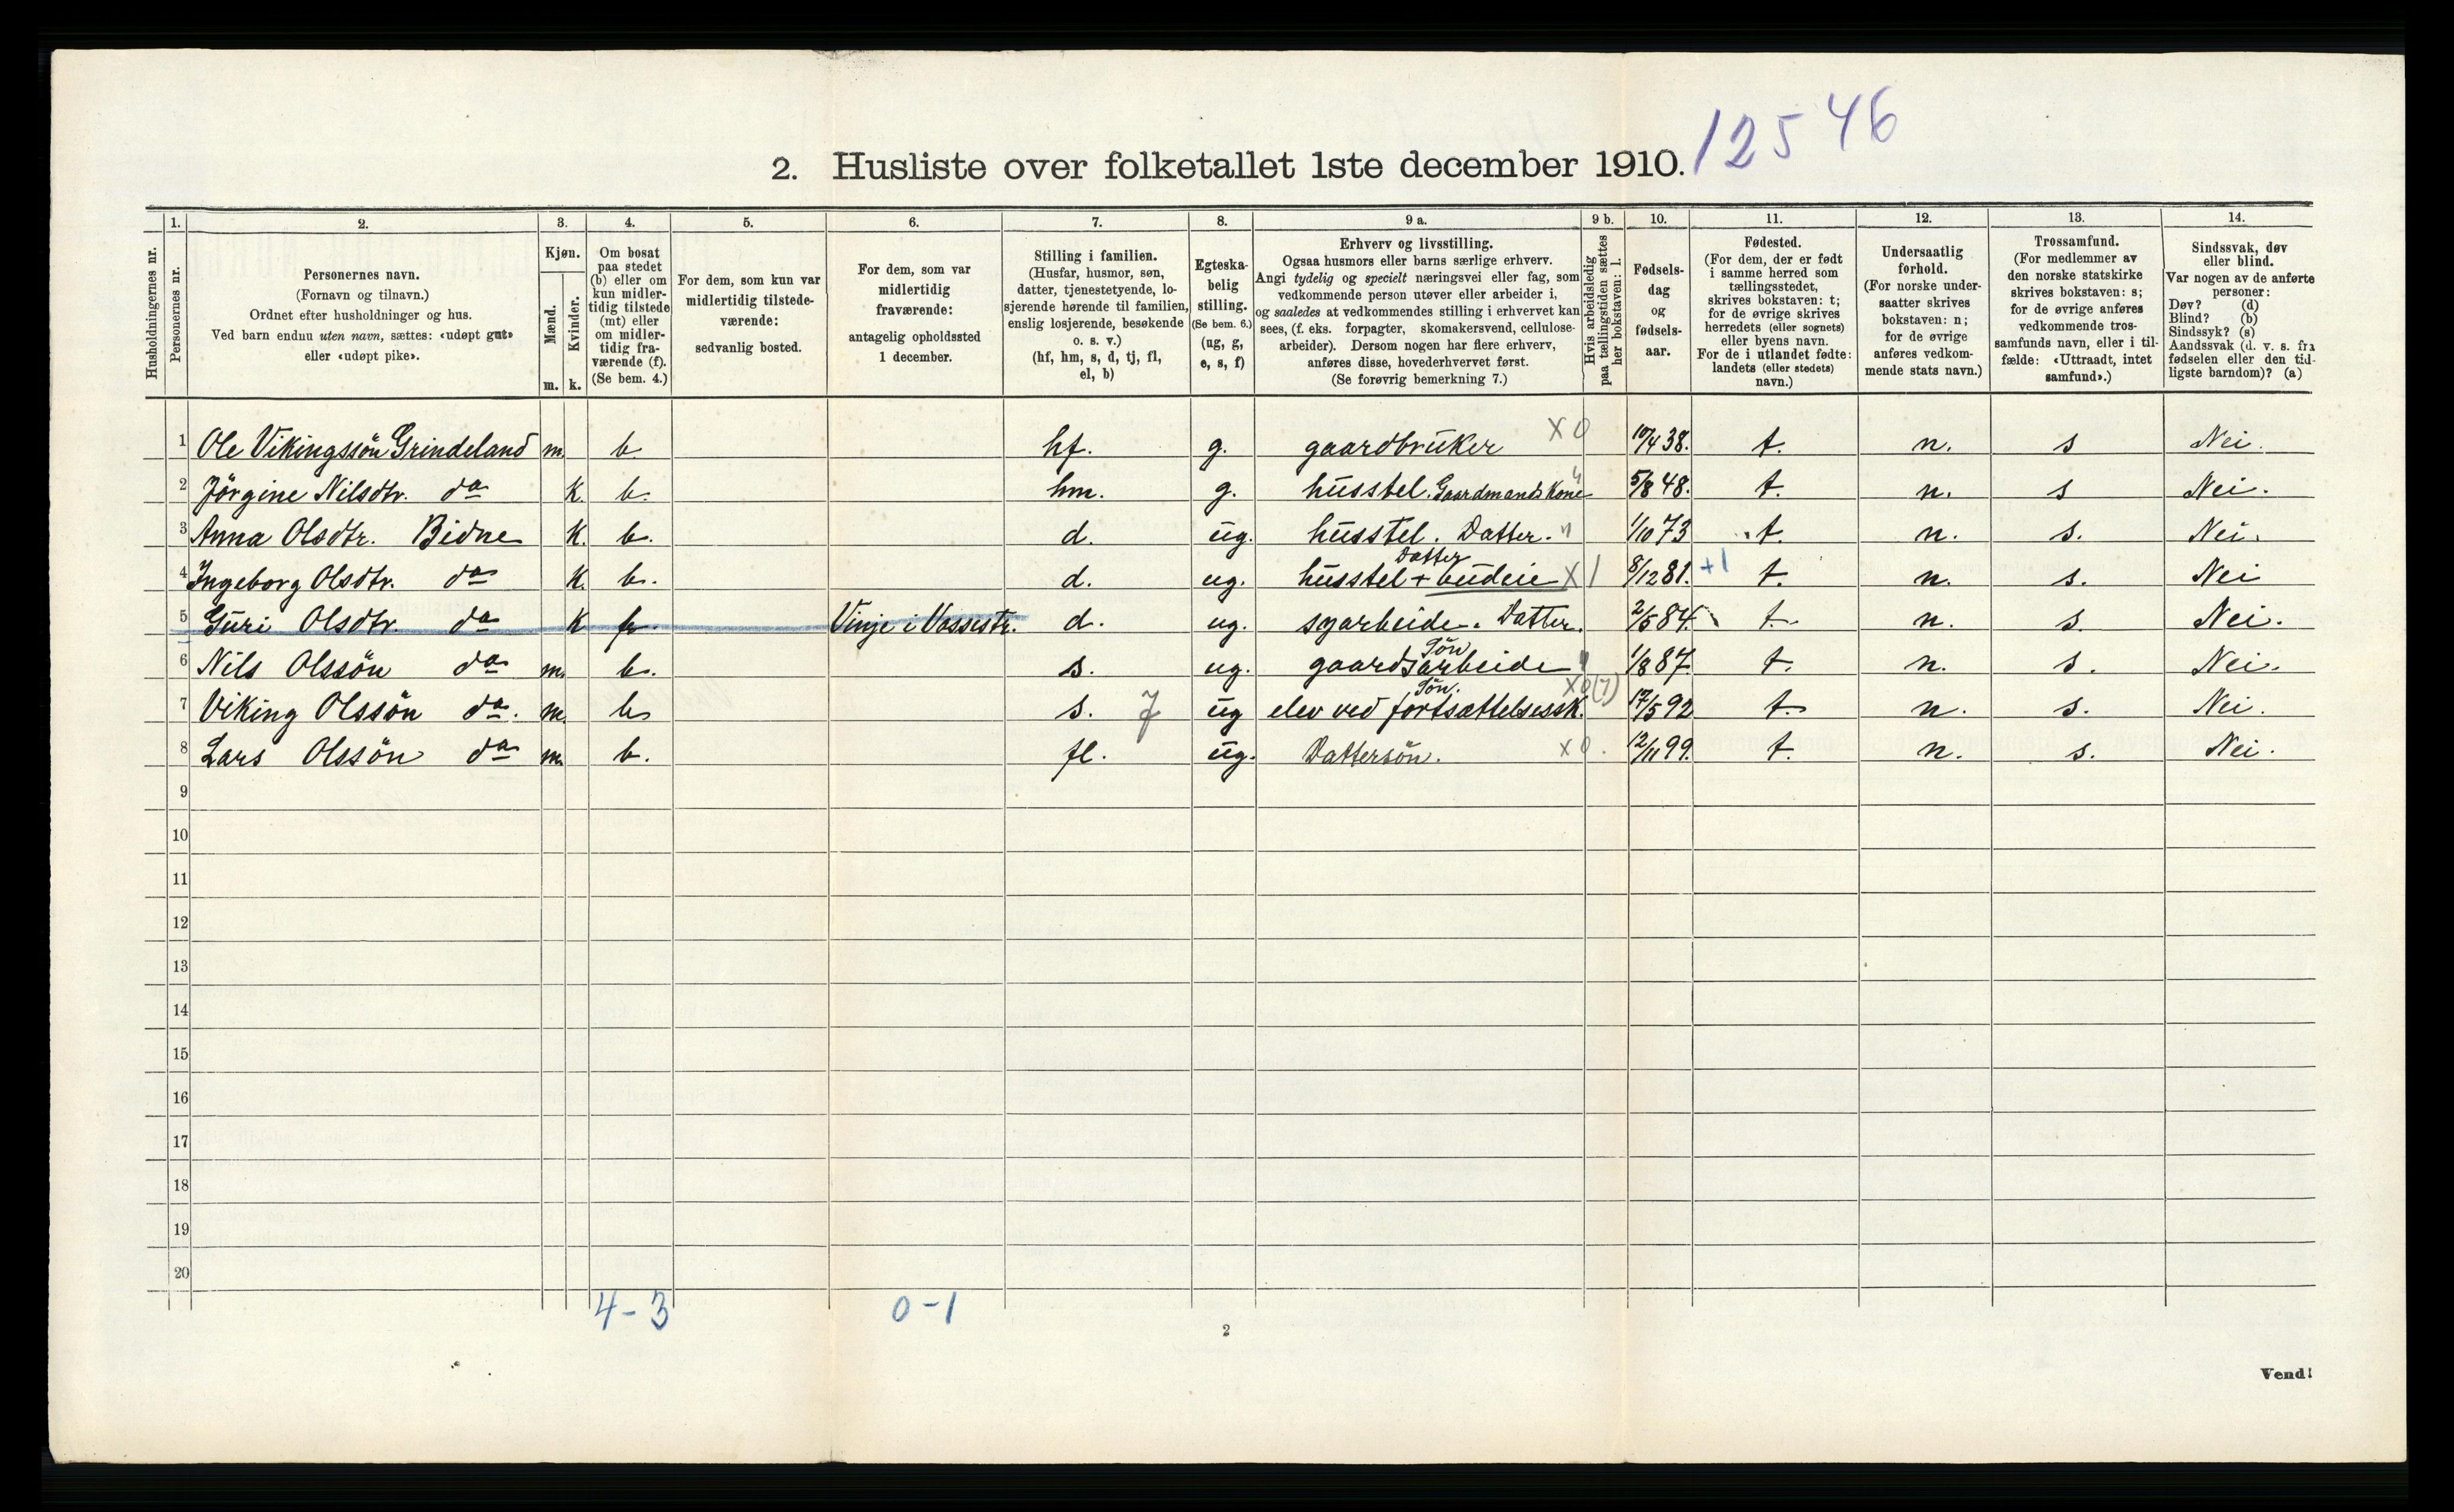 12546
2. Husliste over folketallet 1ste december 1910.
Husholdningernes nr.
1.
Personernes nr.
2.
Personernes navn.
(Fornavn og tilnavn.)
Ordnet efter husholdninger og hus.
Ved barn endnu uten navn, sættes: «udøpt gut»
eller «udøpt pike».
3.
Kjøn.
Mænd.
Kvinder.
m. k.
4.
Om bosat
paa stedet
(b) eller om
kun midler-
tidig tilstede
(mt) eller
om midler-
tidig fra-
værende (f).
(Se bem. 4.)
5.
For dem, som kun var
midlertidig tilstede-
værende:
sedvanlig bosted.
6.
For dem, som var
midlertidig
fraværende:
antagelig opholdssted
1 december.
7.
Stilling i familien.
(Husfar, husmor, søn,
datter, tjenestetyende, lo-
sjerende hørende til familien,
enslig losjerende, besøkende
o. s. v.)
(hf, hm, s, d, tj, fl,
el, b)
8.
Egteska-
belig
stilling.
(Se bem. 6.)
(ug, g,
e, s, f)
9 a.
Erhverv og livsstilling.
Ogsaa husmors eller barns særlige erhverv.
Angi tydelig og specielt næringsvei eller fag, som
vedkommende person utøver eller arbeider i,
og saaledes at vedkommendes stilling i erhvervet kan
sees, (f. eks. forpagter, skomakersvend, cellulose-
arbeider). Dersom nogen har flere erhverv,
anføres disse, hovederhvervet først.
(Se forøvrig bemerkning 7.)
9 b.
Hvis arbeidsledig
paa tællingstiden sættes
her bokstaven: l.
10.
Fødsels-
dag
og
fødsels-
aar.
11.
Fødested.
(For dem, der er født
i samme herred som
tællingsstedet,
skrives bokstaven: t;
for de øvrige skrives
herredets (eller sognets)
eller byens navn.
For de i utlandet fødte:
landets (eller stedets)
navn.)
12.
Undersaatlig
forhold.
(For norske under-
saatter skrives
bokstaven: n;
for de øvrige
anføres vedkom-
mende stats navn.)
13.
Trossamfund.
(For medlemmer av
den norske statskirke
skrives bokstaven: s;
for de øvrige anføres
vedkommende tros-
samfunds navn, eller i til-
fælde: «Uttraadt, intet
samfund».)
14.
Sindssvak, døv
eller blind.
Var nogen av de anførte
personer:
Døv? (d)
Blind? (b)
Sindssyk? (s)
Aandssvak (d. v. s. fra
fødselen eller den tid-
ligste barndom)? (a)
1 Ole Vikingssön Grindeland m. b. hf. g. gaardbruker X0 10/4 38. t. n. s Nei.
2 Jörgine Nilsdtr. do K. b. hm. g. husstel. Gaardmands Kone " 5/8 48. t. n. s Nei.
3 Anna Olsdtr. Bidne K. b. d. ug. husstel. Datter. " 1/10 73 t. n. s. Nei.
4 Ingeborg Olsdtr. do K. b. d. ug. husstel + budeie Datter X 1 8/12 81. +1 t. n. s. Nei
5 Guri Olsdtr. do K f. Vinje i Vossestr. d. ug. syarbeide. Datter. 2/5 84. t. n. s. Nei.
6 Nils Olssön do m. b. s. ug. gaardsarbeide Sön " 1/8 87. t. n. s. Nei.
7 Viking Olssön do. m. b s. 7 ug elev ved fortsættelsessk. Sön. X0(7) 17/5 92 t. n. s. Nei.
8 Lars Olssön do m. b. fl. ug. Dattersön. X0. 12/11 99. t. n. s. Nei.
9
10
11
12
13
14
15
16
17
18
19
20
4-3 0-1
2
Vend!